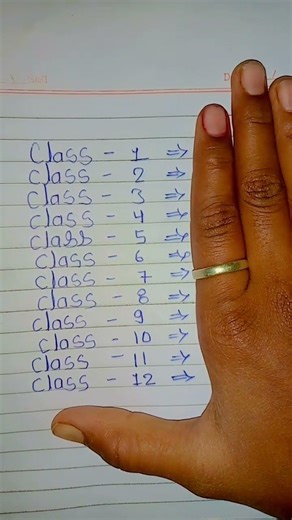 Class - 1 ⇒
Class - 2 ⇒
Class - 3 ⇒
Class - 4 ⇒
Class - 5 ⇒
Class - 6 ⇒
Class - 7 ⇒
Class - 8 ⇒
Class - 9 ⇒
Class - 10 ⇒
Class - 11 ⇒
Class - 12 ⇒